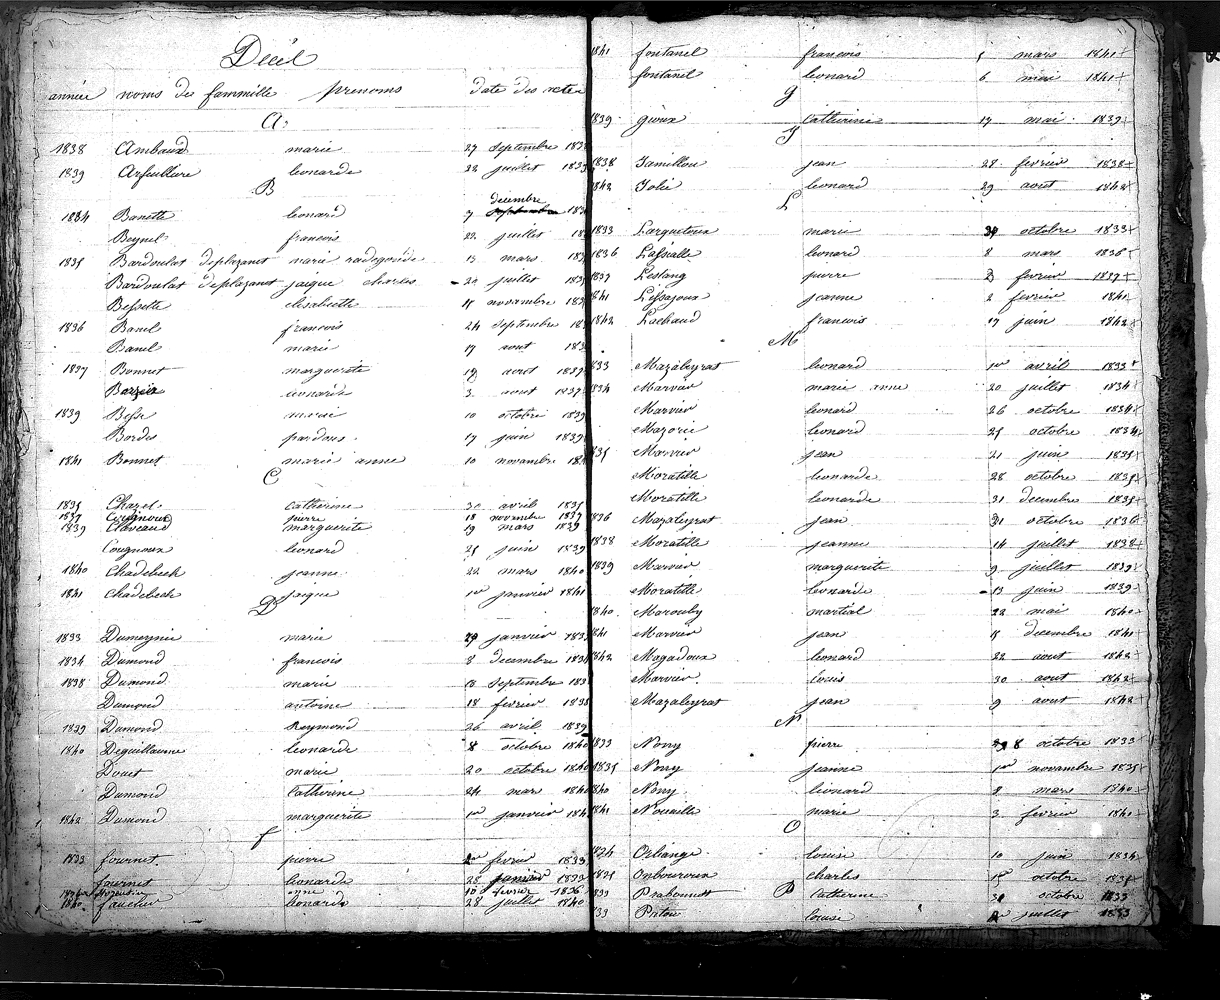 Décès
année noms de fammille prenoms date des actes
A
1838 Ambaud marie 27 septembre 1838
1839 Arfeuillere leonarde 22 juillet 1839
B
decembre
1834 Banette leonard 7 septembre 183
Beynel francois 22 juillet 18
1835 Bardoulat deplazanet marie radegonde 13 mars 183
Bardoulat deplazanet jaique charles 20 juillet 1835
Bessette elisabette 15 novembre 183
1836 Banel francois 24 septembre 18
Banel marie 17 aout 183
1837 Bonnet marguerite 19 aout 1837
leonarde 3 aout 1837
1839 Besse marie 10 octobre 1839
Bordes pardoux 17 juin 1839
1841 Bonnet marie anne 10 novembre 184
C
1835 Chazel catherine 30 avril 1835
1837 Cougnoux pierre 18 novembre 1837
1839 Claveaud marguerite 19 mars 1839
Cougnoux leonard 25 juin 1839
1840 Chadebech jeanne 22 mars 1840
1841 Chadebech jaque 1er janvier 1841
D
1833 Dumeynie marie 29 janvier 1833
1834 Dumond francois 8 decembre 1834
1838 Dumond marie 13 septembre 183
Dumond antoine 18 fevrier 1838
1839 Dumond Reymond 26 avril 1839
1840 Deguillaume leonarde 8 octobre 1840
Douet marie 20 octobre 1840
Dumond Catherine 24 mars 1840
1842 Dumond marguerite 1er janvier 184
f
1833 fournet pierre 1er fevrier 1833
fournet leonarde 28 janvier 1833
1836 anne 10 fevrier 1836
1840 faucher leonarde 28 juillet 1840
1841 fontanel francois 5 mars 1841
fontanel leonard 6 mai 1841
g
1839 gioux Catherine 17 mai 1839
J
1838 Jamillou jean 28 fevrier 1838
1842 Jolie leonard 29 aout 1842
L
1833 Larguetoux marie octobre 1833
1836 Lafialle leonard 8 mars 1836
1837 Lestang pierre 2 fevrier 1837
1841 Lissajoux jeanne 2 fevrier 1841
1842 Lachaud francois 17 juin 1842
M
1833 Mazaleyrat leonard 1er avril 1833
1834 Marvier marie anne 20 juillet 1834
Marvier leonard 26 octobre 1834
Mazorie leonard 25 octobre 1834
1835 Marvier jean 21 juin 1835
Moratille leonarde 28 octobre 1835
Moratille leonarde 31 decembre 1835
1836 Mazaleyrat jean 21 octobre 1836
1838 Moratille jeanne 14 juillet 1838
1839 Marvier marguerite 9 juillet 1839
Moratille leonarde 13 juin 1839
1840 Marouby martial 22 mai 1840
1841 Marvier jean 18 decembre 1841
1842 Magadoux leonard 22 aout 1842
Marvier louis 30 aout 1842
Mazaleyrat jean 9 aout 1842
N
1833 Nony pierre 8 octobre 1833
1835 Nony jeanne 1er novembre 1835
1840 Nony leonard 2 mars 1840
1841 Nouaille marie 3 fevrier 1841
O
1834 Orliange louise 10 juin 1834
1835 Orbouroux charles 15 octobre 1835
P
1833 Prabonnet Catherine 31 octobre 1833
1833 louise 1er juillet 1833